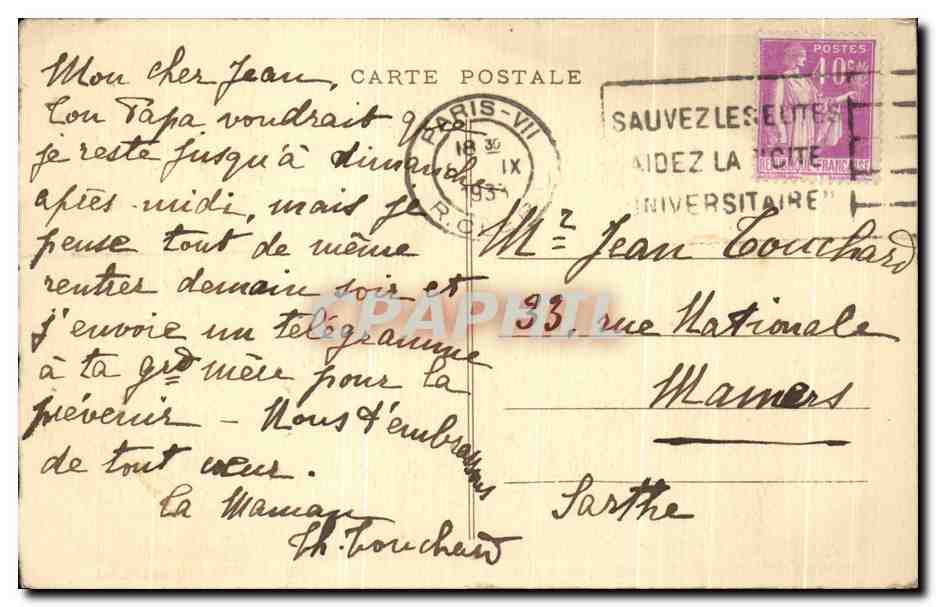 CARTE POSTALE
Mon cher Jean,
Ton Papa voudrait que
je reste jusqu'à dimanche
après-midi, mais je
pense tout de même
rentrer demain soir et
j'envoie un télégramme
à ta grd mère pour la
prévenir - Nous t'embrassons
de tout cœur.
Ta Maman
Th. Touchard
PARIS-VII
18 30
IX
193
R.
SAUVEZ LES ELITES
AIDEZ LA "CITE
UNIVERSITAIRE"
POSTES
40c
FRANÇAISE
Mr Jean Touchard
33, rue Nationale
Mamers
Sarthe
CPAPHIL